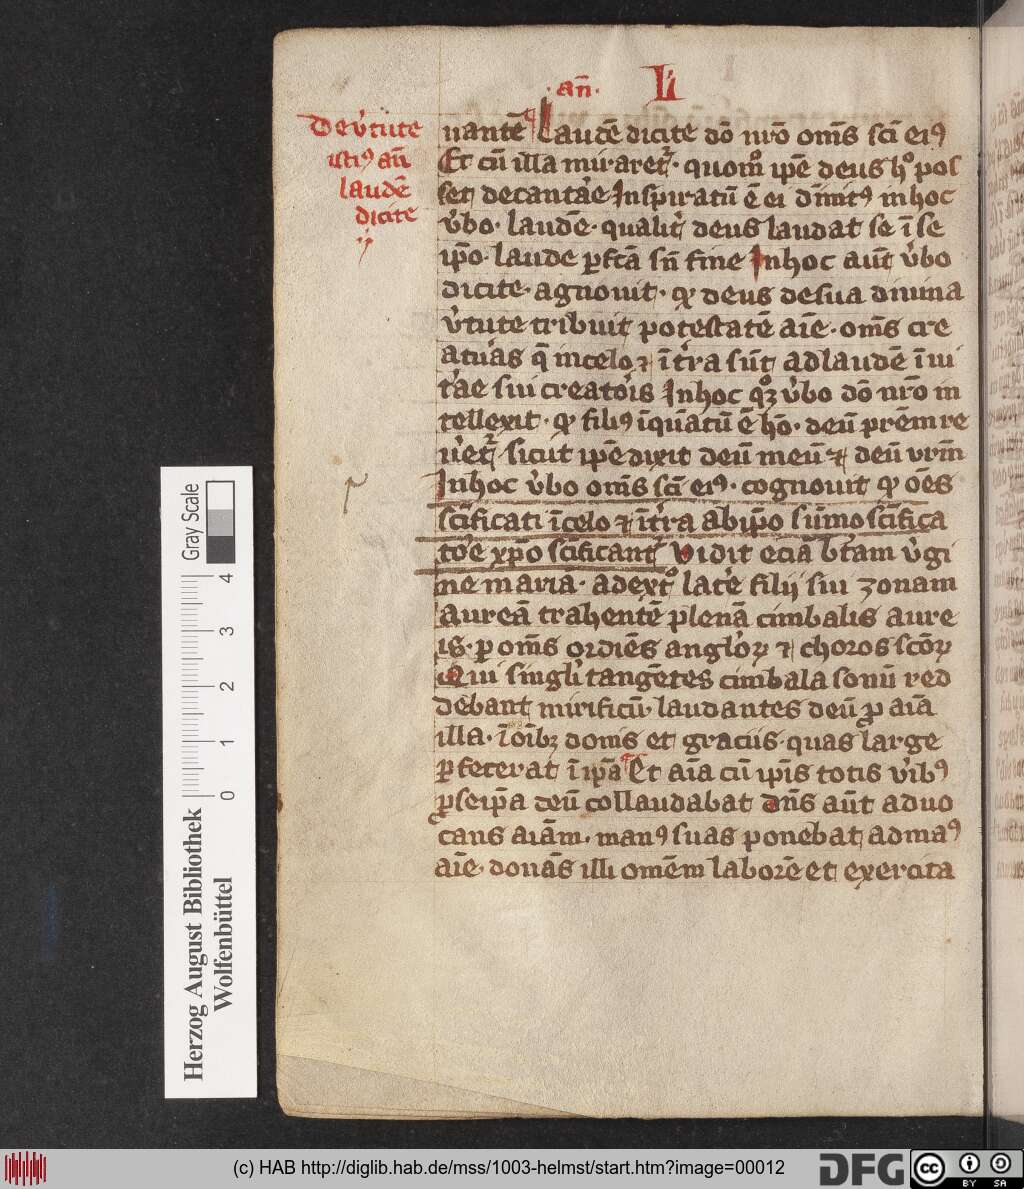 ·an̄· Li
De v̓tute
isti⁹ an̄
laudē
dicite
nantē Laudē dicite dō nr̄o om̄s sc̄i ei⁹
Et cū illa miraret᷑· quom̊ ip̄e deus h̊ pos
set decantar̓e Inspiratū ē ei diuinit⁹ in hoc
v̓bo· laudē· qualit̓ deus laudat se ī se
ip̄o· laude ꝑfc̄ā sn̄ fine Inhoc aut̄ v̓bo
dicite· agnouit· qꝫ deus de sua diuina
v̓tute tribuit potestatē aīe· om̄s cre
atur̓as q̄ in celo ⁊ īt̓ra sūt ad laudē īui
tar̓e sui creator̓is Inhoc qꝫ v̓bo dō nr̄o in
tellexit· qꝫ fili⁹ īq̄ātū ē hō· deū pr̄em re
ueret᷑ sicut ip̄e dixit deū meū ⁊ deū vrm̄
Inhoc v̓bo om̄s sc̄i ei⁹· cognouit qꝫ oēs
sc̄ificati īcelo ⁊ īt̓ra ab ip̄o sūmo sc̄ifica
tor̓e xp̄o sc̄ificant᷑ Vidit eciā bt̄am v̓gi
ne mariā· ad ext̊ latr̓e filij sui zonam
aureā trahentē plenā cimbalis aure
is· ꝑ om̄s ordiēs anglo̓ꝝ ⁊ choros sc̄oꝝ
Qui singli̓ tangētes cimbala sonū red
debant mirificū· laudantes deū ꝓ aīa
illa· ī oīb⁊ donis et graciis· quas large
ꝑfecerat ī ip̄a Et aīa cū ip̄is totis v̓ib⁹
ꝑ seip̄a deū collaudabat dn̄s aut̄ aduo
cans aīam· man⁹ suas ponebat ad ma⁹
aīe· donās illi omēm laborē et exercita
Gray Scale
4
3
2
1
0
Herzog August Bibliothek
Wolfenbüttel
(c) HAB http://diglib.hab.de/mss/1003-helmst/start.htm?image=00012
DFG
cc
BY SA